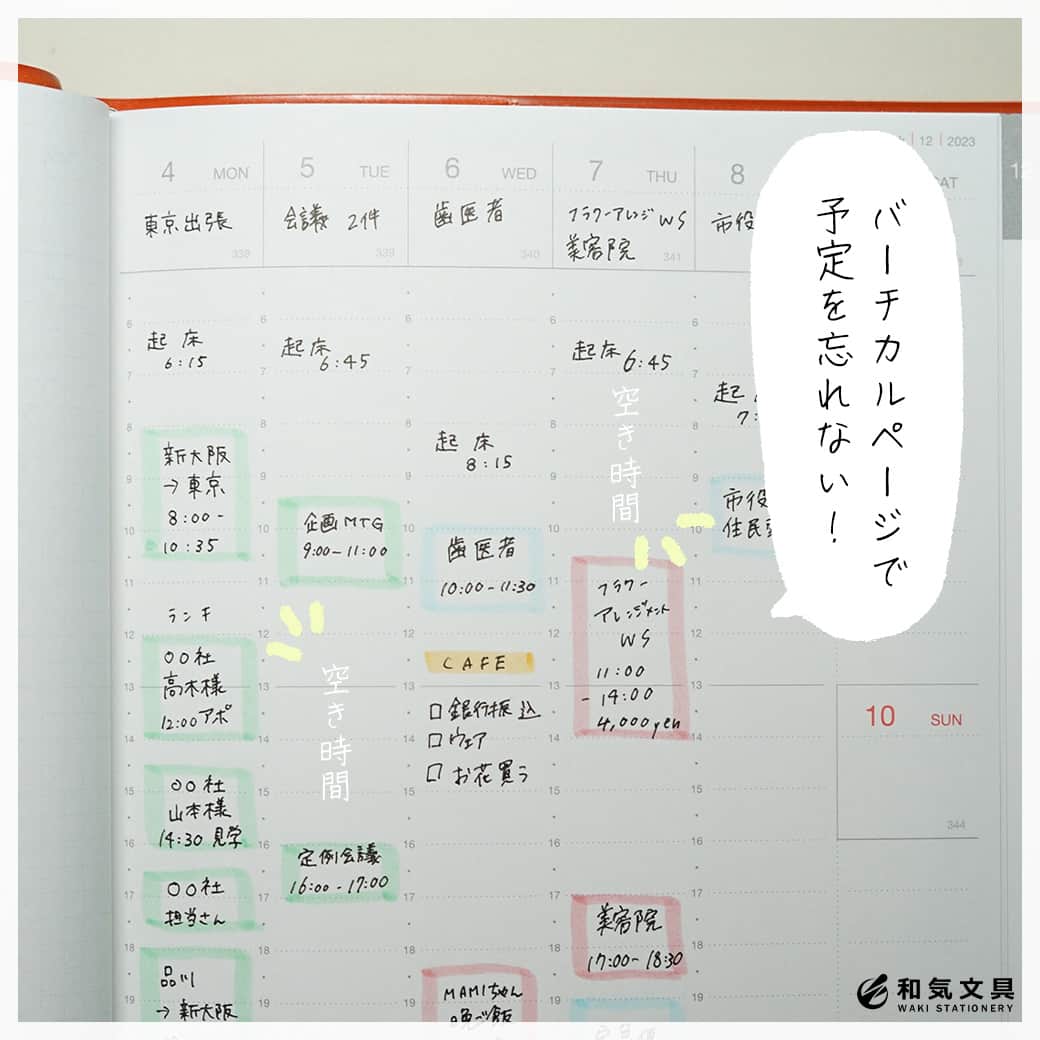 12 | 2023
4 MON
東京出張
338
5 TUE
会議 2件
339
6 WED
歯医者
340
7 THU
フラワーアレンジ WS
美容院
341
8
市役
バーチカルページで
予定を忘れない!
起床
6:15
新大阪
→ 東京
8:00 -
10:35
ランチ
〇〇社
高木様
12:00 アポ
〇〇社
山本様
14:30 見学
〇〇社
担当さん
品川
→ 新大阪
起床
6:45
企画MTG
9:00 - 11:00
空き時間
定例会議
16:00 - 17:00
起床
8:15
歯医者
10:00 - 11:30
CAFE
□ 銀行振込
□ ウェア
□ お花買う
MAMIちゃん
晩ご飯
起床 6:45
空き時間
フラワー
アレンジメント
WS
11:00
- 14:00
4,000yen
美容院
17:00 - 18:30
市役
住民
10 SUN
344
和気文具
WAKI STATIONERY